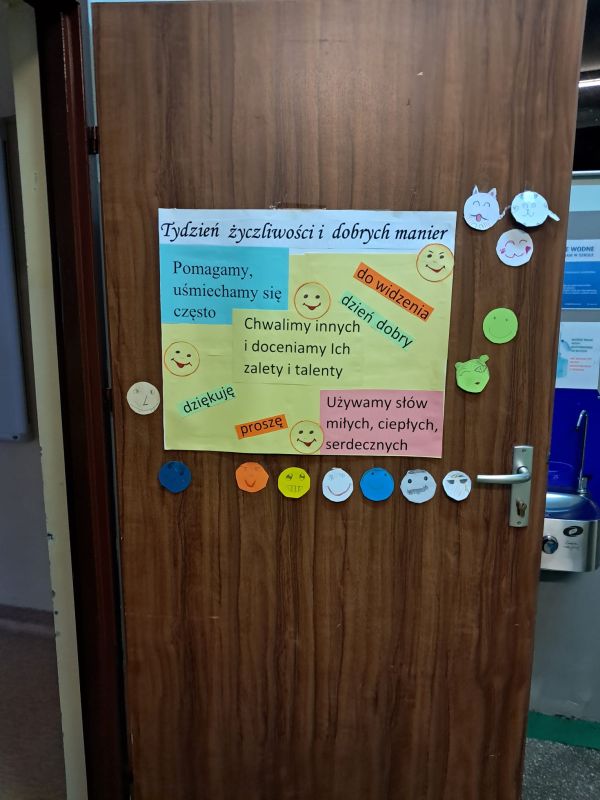 Tydzień życzliwości i dobrych manier
Pomagamy,
uśmiechamy się
często
do widzenia
dzień dobry
Chwalimy innych
i doceniamy Ich
zalety i talenty
dziękuję
proszę
Używamy słów
miłych, ciepłych,
serdecznych
WODNE